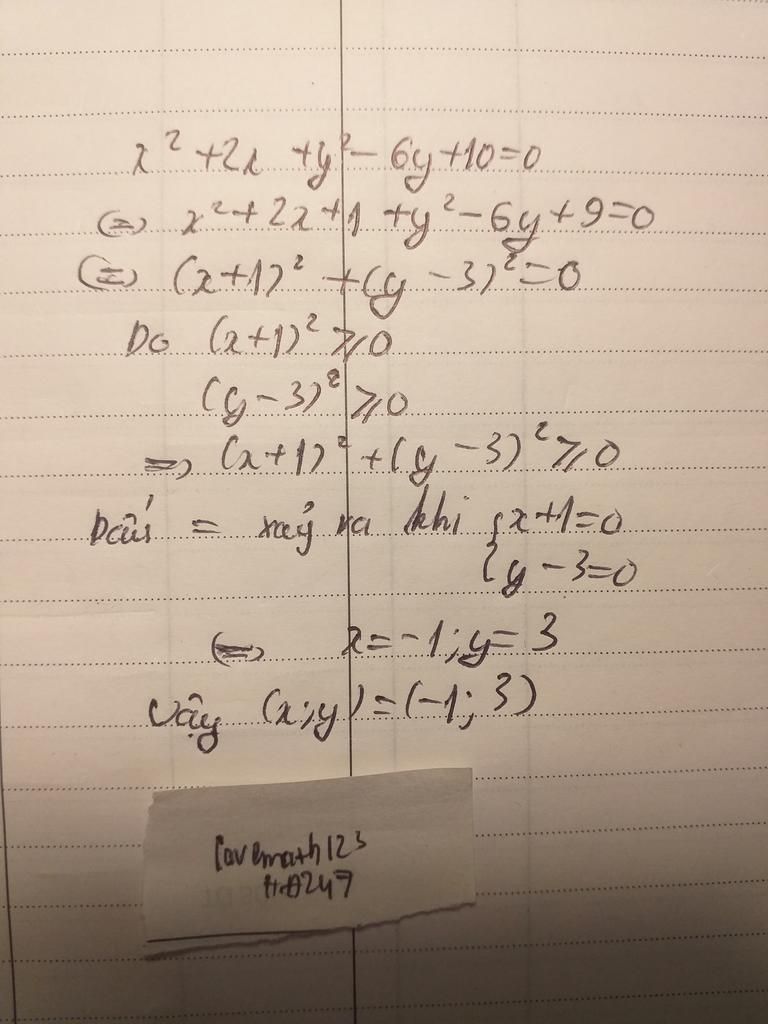 x² + 2x + y² - 6y + 10 = 0
(=) x² + 2x + 1 + y² - 6y + 9 = 0
(=) (x+1)² + (y - 3)² = 0
Do (x+1)² ⩾ 0
(y - 3)² ⩾ 0
=> (x+1)² + (y - 3)² ⩾ 0
Dấu = xảy ra khi { x+1=0
{ y - 3=0
(=) x = -1; y = 3
Vậy (x;y) = (-1; 3)
lovemath123